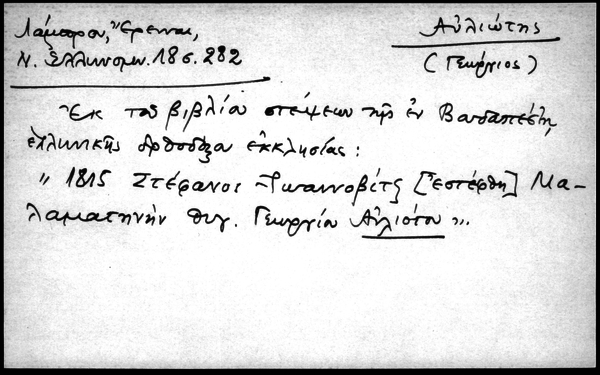 Λάμπρου, Ἔρευναι,
Ν. Ἑλληνομν. 18 σ. 282
Αὐλιώτης
(Γεώργιος)
Ἐκ τοῦ βιβλίου στέψεων τῆς ἐν Βουδαπέστῃ
ἑλληνικῆς ὀρθοδόξου ἐκκλησίας:
" 1815 Στέφανος Ἰωαννοβίτς [ἐστέφθη] Μα-
λαματηνὴν θυγ. Γεωργίου Αὐλιότου ".